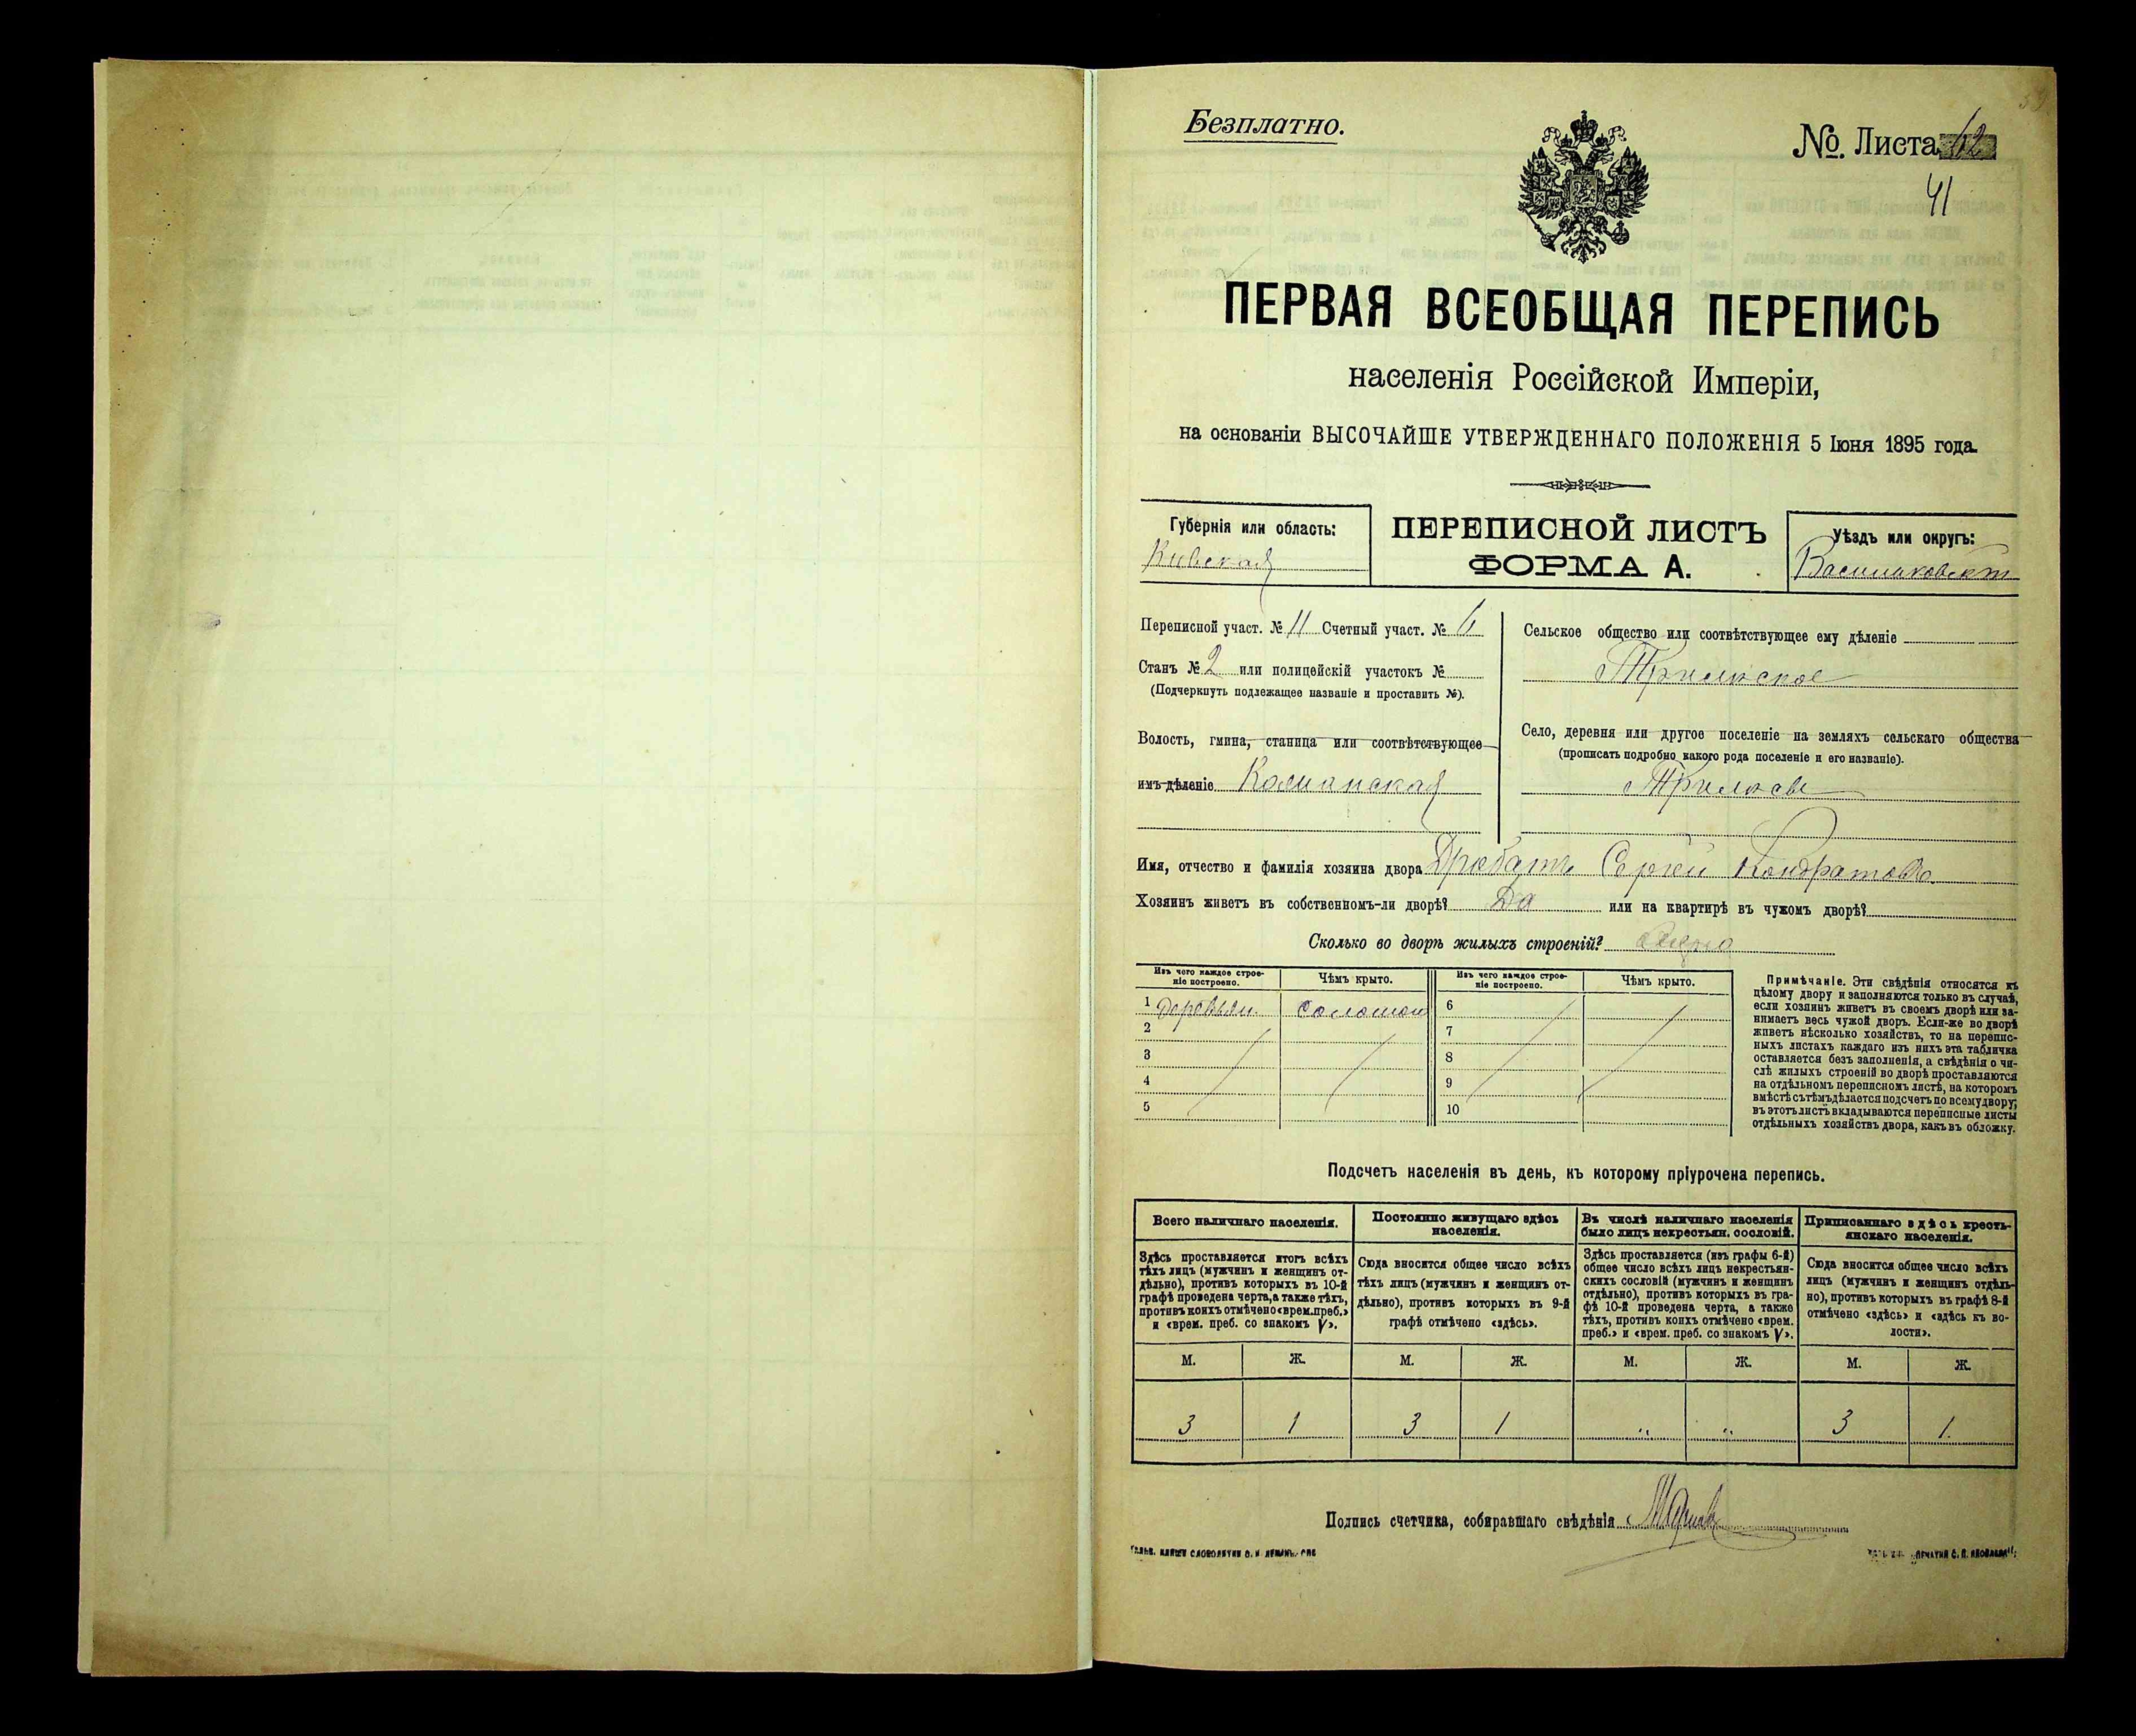 Безплатно.
№. Листа 62
41
ПЕРВАЯ ВСЕОБЩАЯ ПЕРЕПИСЬ
населенія Россійской Имперіи,
на основаніи ВЫСОЧАЙШЕ УТВЕРЖДЕННАГО ПОЛОЖЕНІЯ 5 Іюня 1895 года.
Губернія или область:
Кіевская
ПЕРЕПИСНОЙ ЛИСТЪ
ФОРМА А.
Уѣздъ или округъ:
Васильковскій
Переписной участ. № 11 Счетный участ. № 6
Станъ № 2 или полицейскій участокъ №
(Подчеркнуть подлежащее названіе и проставить №).
Волость, гмина, станица или соотвѣтствующее
имъ дѣленіе
Сельское общество или соотвѣтствующее ему дѣленіе
Трилѣское
Село, деревня или другое поселеніе на земляхъ сельскаго общества
(прописать подробно какого рода поселеніе и его названіе).
Трилѣсы
Имя, отчество и фамилія хозяина двора Сергѣй Кондратовъ
Хозяинъ живетъ въ собственномъ-ли дворѣ? Да или на квартирѣ въ чужомъ дворѣ?
Сколько во дворѣ жилыхъ строеній? Одно
Изъ чего каждое строе-
ніе построено.
Чѣмъ крыто.
Изъ чего каждое строе-
ніе построено.
Чѣмъ крыто.
1 деревян. соломой 6
2 7
3 8
4 9
5 10
Примѣчаніе. Эти свѣдѣнія относятся къ
цѣлому двору и заполняются только въ случаѣ,
если хозяинъ живетъ въ своемъ дворѣ или за-
нимаетъ весь чужой дворъ. Если-же во дворѣ
живетъ нѣсколько хозяйствъ, то на перепис-
ныхъ листахъ каждаго изъ нихъ эта табличка
оставляется безъ заполненія, а свѣдѣнія о чи-
слѣ жилыхъ строеній во дворѣ проставляются
на отдѣльномъ переписномъ листѣ, на которомъ
вмѣстѣ съ тѣмъ дѣлается подсчетъ по всему двору;
въ этотъ листъ вкладываются переписные листы
отдѣльныхъ хозяйствъ двора, какъ въ обложку.
Подсчетъ населенія въ день, къ которому пріурочена перепись.
Всего наличнаго населенія.
Здѣсь проставляется итогъ всѣхъ
тѣхъ лицъ (мужчинъ и женщинъ от-
дѣльно), противъ которыхъ въ 10-й
графѣ проведена черта, а также тѣхъ,
противъ коихъ отмѣчено «врем. преб.»
и «врем. преб. со знакомъ V».
Постоянно живущаго здѣсь
населенія.
Сюда вносится общее число всѣхъ
тѣхъ лицъ (мужчинъ и женщинъ от-
дѣльно), противъ которыхъ въ 9-й
графѣ отмѣчено «здѣсь».
Въ числѣ наличнаго населенія
было лицъ некрестьян. сословій.
Здѣсь проставляется (изъ графы 6-й)
общее число всѣхъ лицъ некрестьян-
скихъ сословій (мужчинъ и женщинъ
отдѣльно), противъ которыхъ въ гра-
фѣ 10-й проведена черта, а также
тѣхъ, противъ коихъ отмѣчено «врем.
преб.» и «врем. преб. со знакомъ V».
Приписаннаго здѣсь кресть-
янскаго населенія.
Сюда вносится общее число всѣхъ
лицъ (мужчинъ и женщинъ отдѣль-
но), противъ которыхъ въ графѣ 8-й
отмѣчено «здѣсь» и «здѣсь къ во-
лости».
М. Ж. М. Ж. М. Ж. М. Ж.
3 1 3 1 " " 3 1.
Подпись счетчика, собиравшаго свѣдѣнія